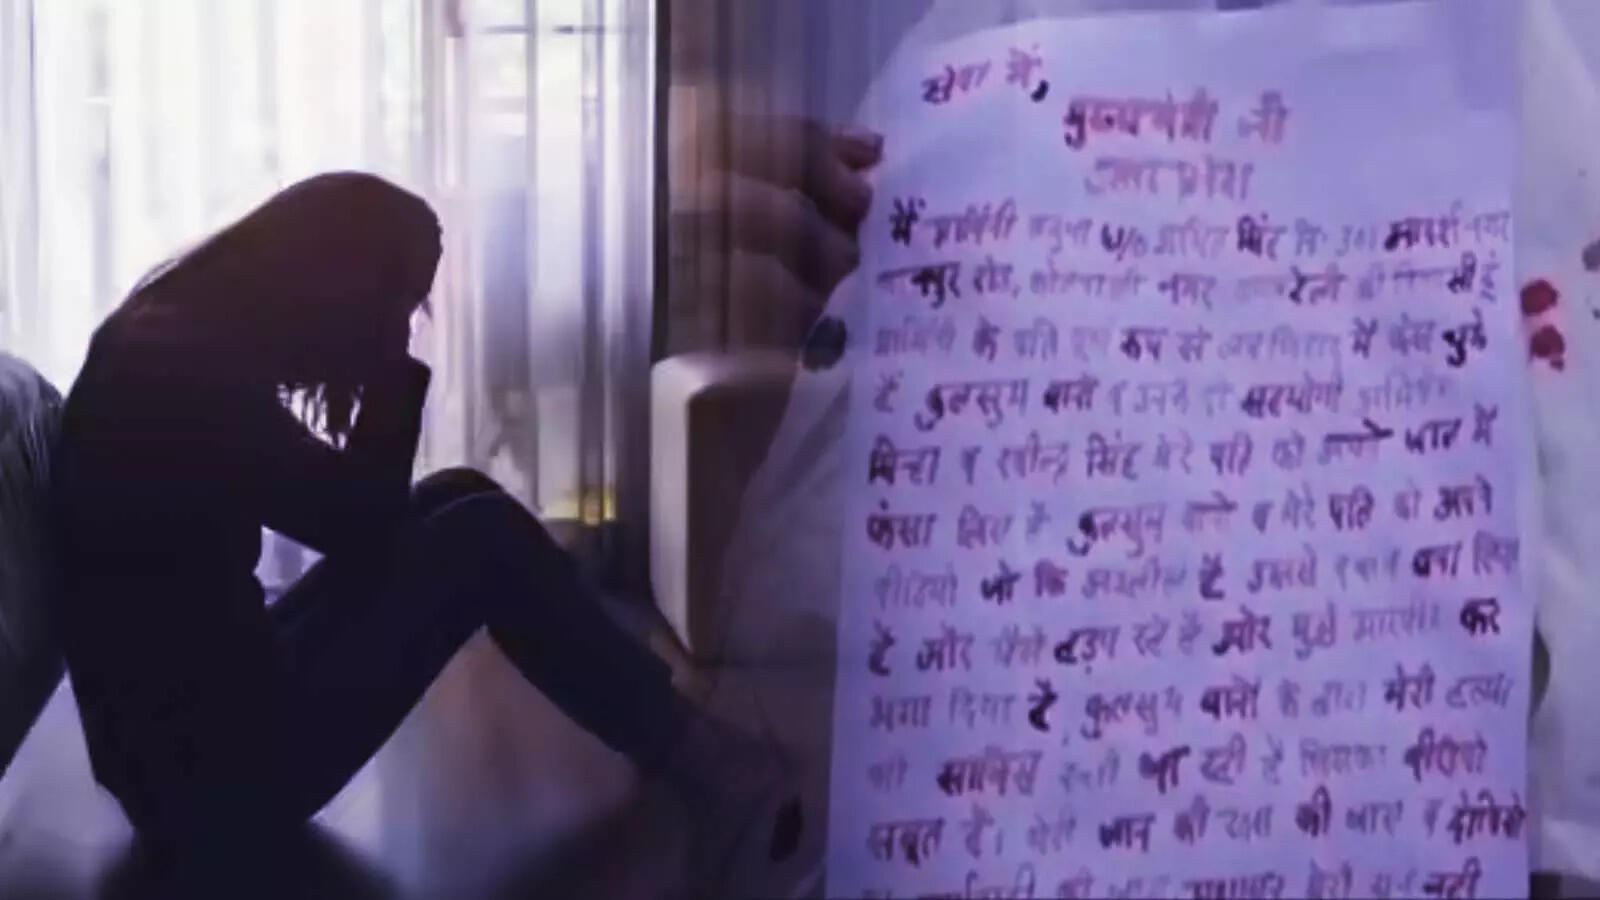 सेवा में,
मुख्यमंत्री जी
उत्तर प्रदेश
मैं प्रार्थिनी W/o सिंह नि० मारुती नगर
रोड, कोतवाली नगर की हूं
के पति पूर्ण रूप से में फंस चुके
हैं कुलसुम बानो व उनके दो सहयोगी
मिश्रा व रवीन्द्र सिंह मेरे पति को अपने जाल में
फंसा लिए हैं कुलसुम बानो व मेरे पति को अपने
वीडियो जो कि अश्लील है उसमें बना लिया
है और पैसे हड़प रहे हैं और मुझे मारपीट कर
भगा दिया है कुलसुम बानो के द्वारा मेरी हत्या
की साजिस रची जा रही है जिसका वीडियो
सबूत है। मेरी जान की रक्षा की जाए व दोषियो
की जाए मेरी